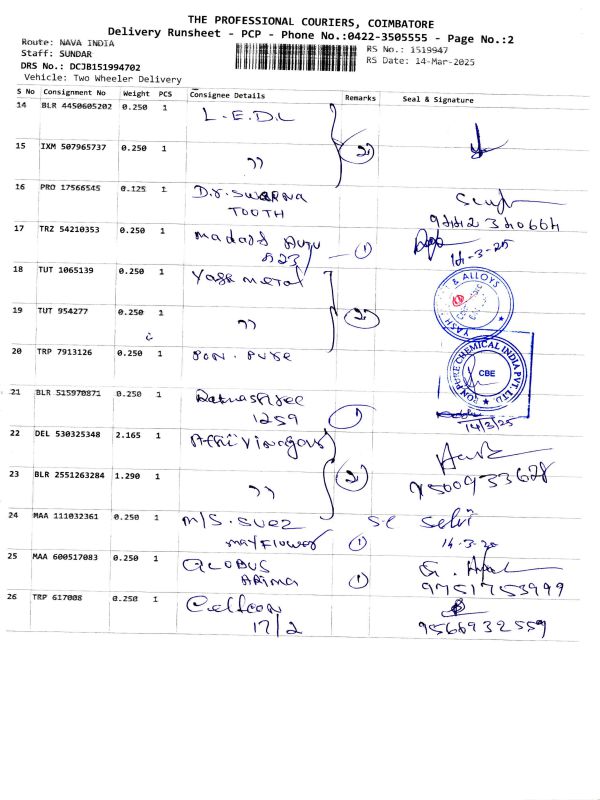 THE PROFESSIONAL COURIERS, COIMBATORE
Delivery Runsheet - PCP - Phone No.:0422-3505555 - Page No.:2
Route: NAVA INDIA
RS No.: 1519947
Staff: SUNDAR
RS Date: 14-Mar-2025
DRS No.: DCJB151994702
Vehicle: Two Wheeler Delivery
S No Consignment No Weight PCS Consignee Details Remarks Seal & Signature
14 BLR 4450605202 0.250 1 L.E.D.L
15 IXM 507965737 0.250 1 ,, 2
16 PRO 17566545 0.125 1 D.r. SWARNA
TOOTH
17 TRZ 54210353 0.250 1 1
14-3-25
18 TUT 1065139 0.250 1 Yash metal
YASH & ALLOYS
19 TUT 954277 0.250 1 ,, 2
20 TRP 7913126 0.250 1 PON. PURE
PON PURE CHEMICAL INDIA PVT LTD.
CBE
21 BLR 515970871 0.250 1
1259 1 14/3/25
22 DEL 530325348 2.165 1 Athi Vinayaga
23 BLR 2551263284 1.290 1 ,, 2
24 MAA 111032361 0.250 1 M/S. SUEZ Selvi
MAYFLOWER 1
25 MAA 600517083 0.250 1 GLOBUS
ARIMA 1 9751753999
26 TRP 617008 0.250 1 Cellcon
17/2 9566932559